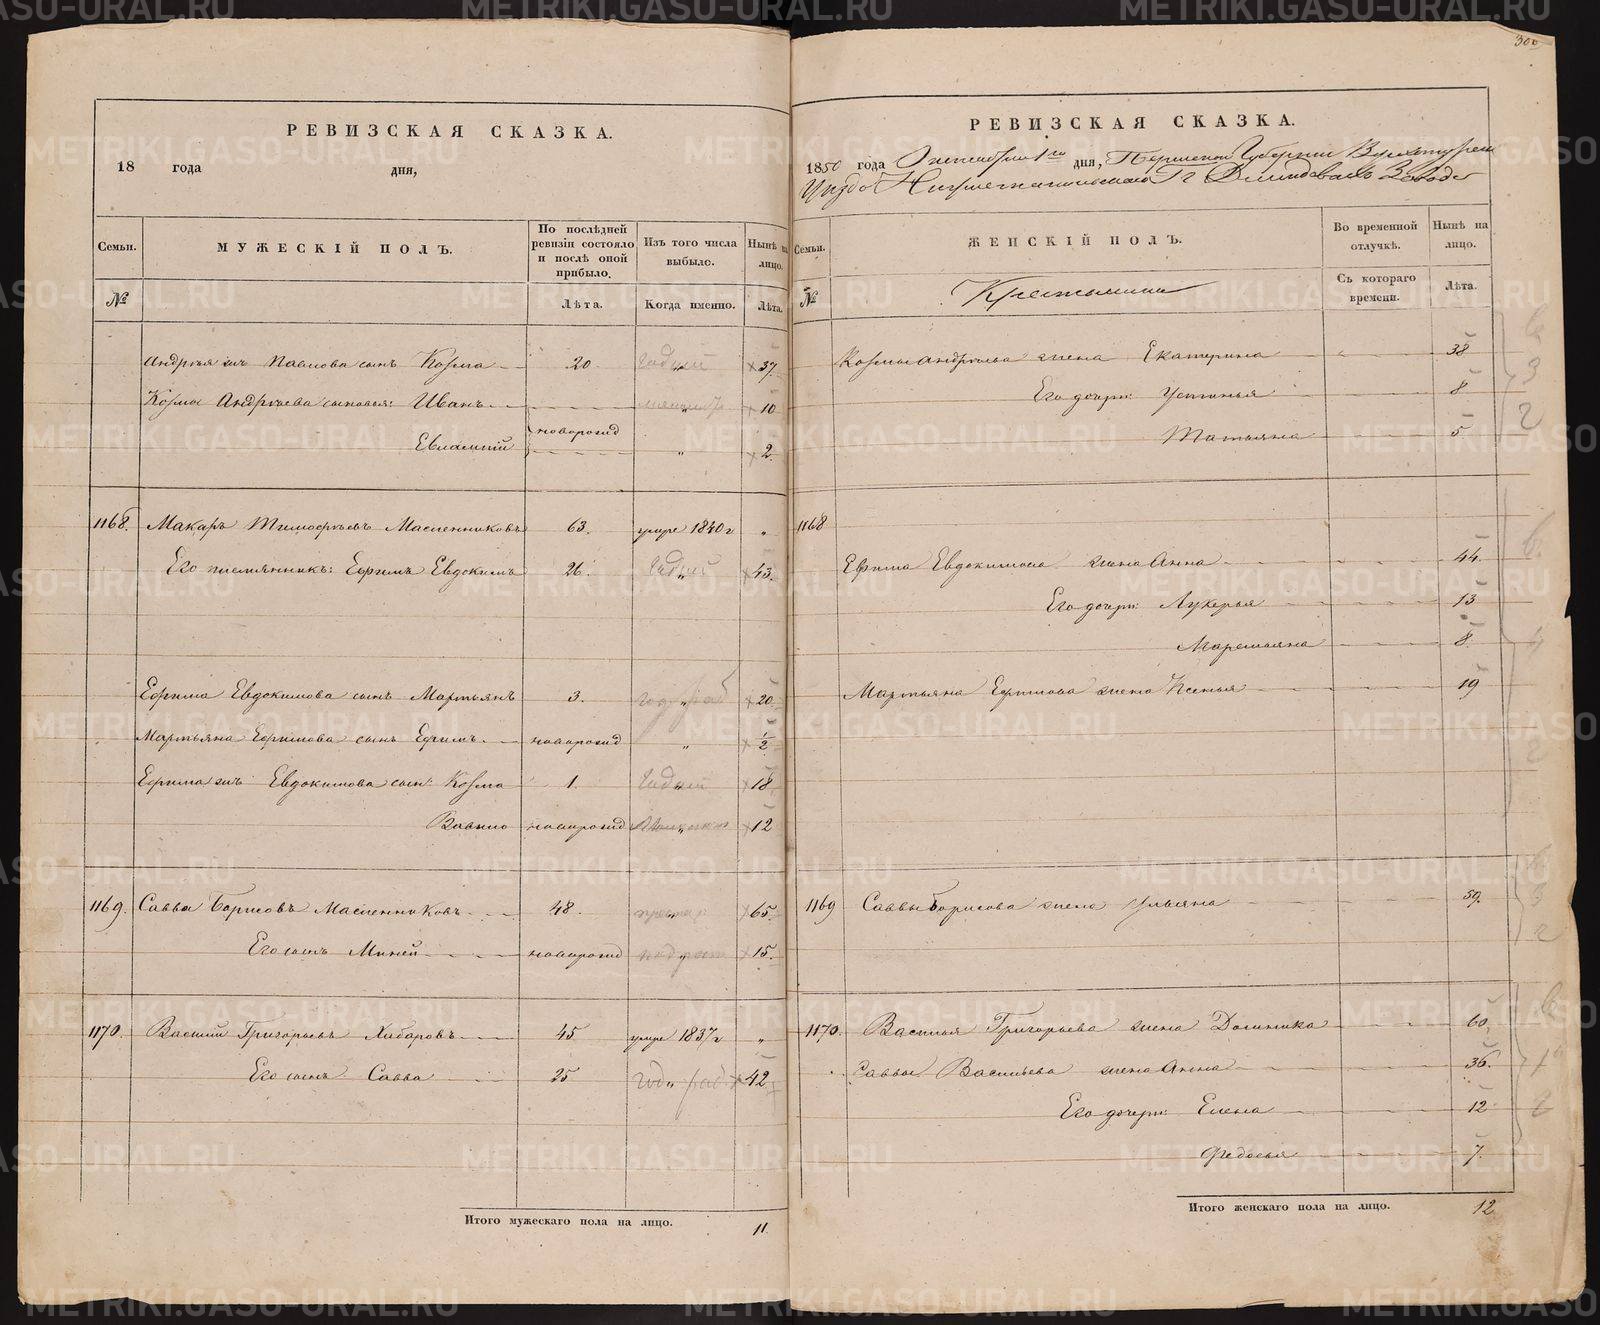 РЕВИЗСКАЯ СКАЗКА.
18 года дня,
Семьи.
МУЖЕСКІЙ ПОЛЪ.
По послѣдней ревизіи состояло и послѣ оной прибыло.
Изъ того числа выбыло.
Нынѣ на лицо.
№
Лѣта.
Когда именно.
Лѣта.
Андрея Павлова сынъ Козма 20 годный 37.
Козмы Андреева сыновья: Иванъ 10
новорожд
Евлампій „ 2.
1168. Макаръ Тимофѣевъ Масленниковъ 63. умре 1840 г „
Его племянникъ: Ефимъ Евдокимъ 26. годный 43.
Ефима Евдокимова сынъ Мартьянъ 3. год раб 20.
Мартьяна Ефимова сынъ Ефимъ новорожд „ 1/2
Ефима Евдокимова сын: Козма 1. годный 18
Вавило новорожд 12
1169. Савва Борисовъ Масленниковъ 48. престар 65.
Его сынъ Миней новорожд подрост 15.
1170. Василій Григорьевъ Хибаровъ 45 умре 1837 г „
Его сынъ Савва 25 год раб 42
Итого мужескаго пола на лицо. 11.
300
РЕВИЗСКАЯ СКАЗКА.
1850 года Октября 1го дня, Пермской Губерніи Верхотурск
Уѣзда Нижнетагильскаго Гг Демидовыхъ Завода
Семьи.
ЖЕНСКІЙ ПОЛЪ.
Во временной отлучкѣ.
Нынѣ на лицо.
№
Крестьяне
Съ котораго времени.
Лѣта.
Козмы Андреева жена Екатерина 38
Его дочери: Устинья 8
Татьяна 5
1168
Ефима Евдокимова жена Анна 44.
Его дочери: Лукерья 13
Маремьяна 8.
Мартьяна Ефимова жена Ксенья 19
1169 Саввы Борисова жена Ульяна 59.
1170. Василья Григорьева жена Домника 60.
Саввы Васильева жена Анна 36.
Его дочери: Елена 12
Федосья 7.
Итого женскаго пола на лицо. 12
METRIKI.GASO-URAL.RU